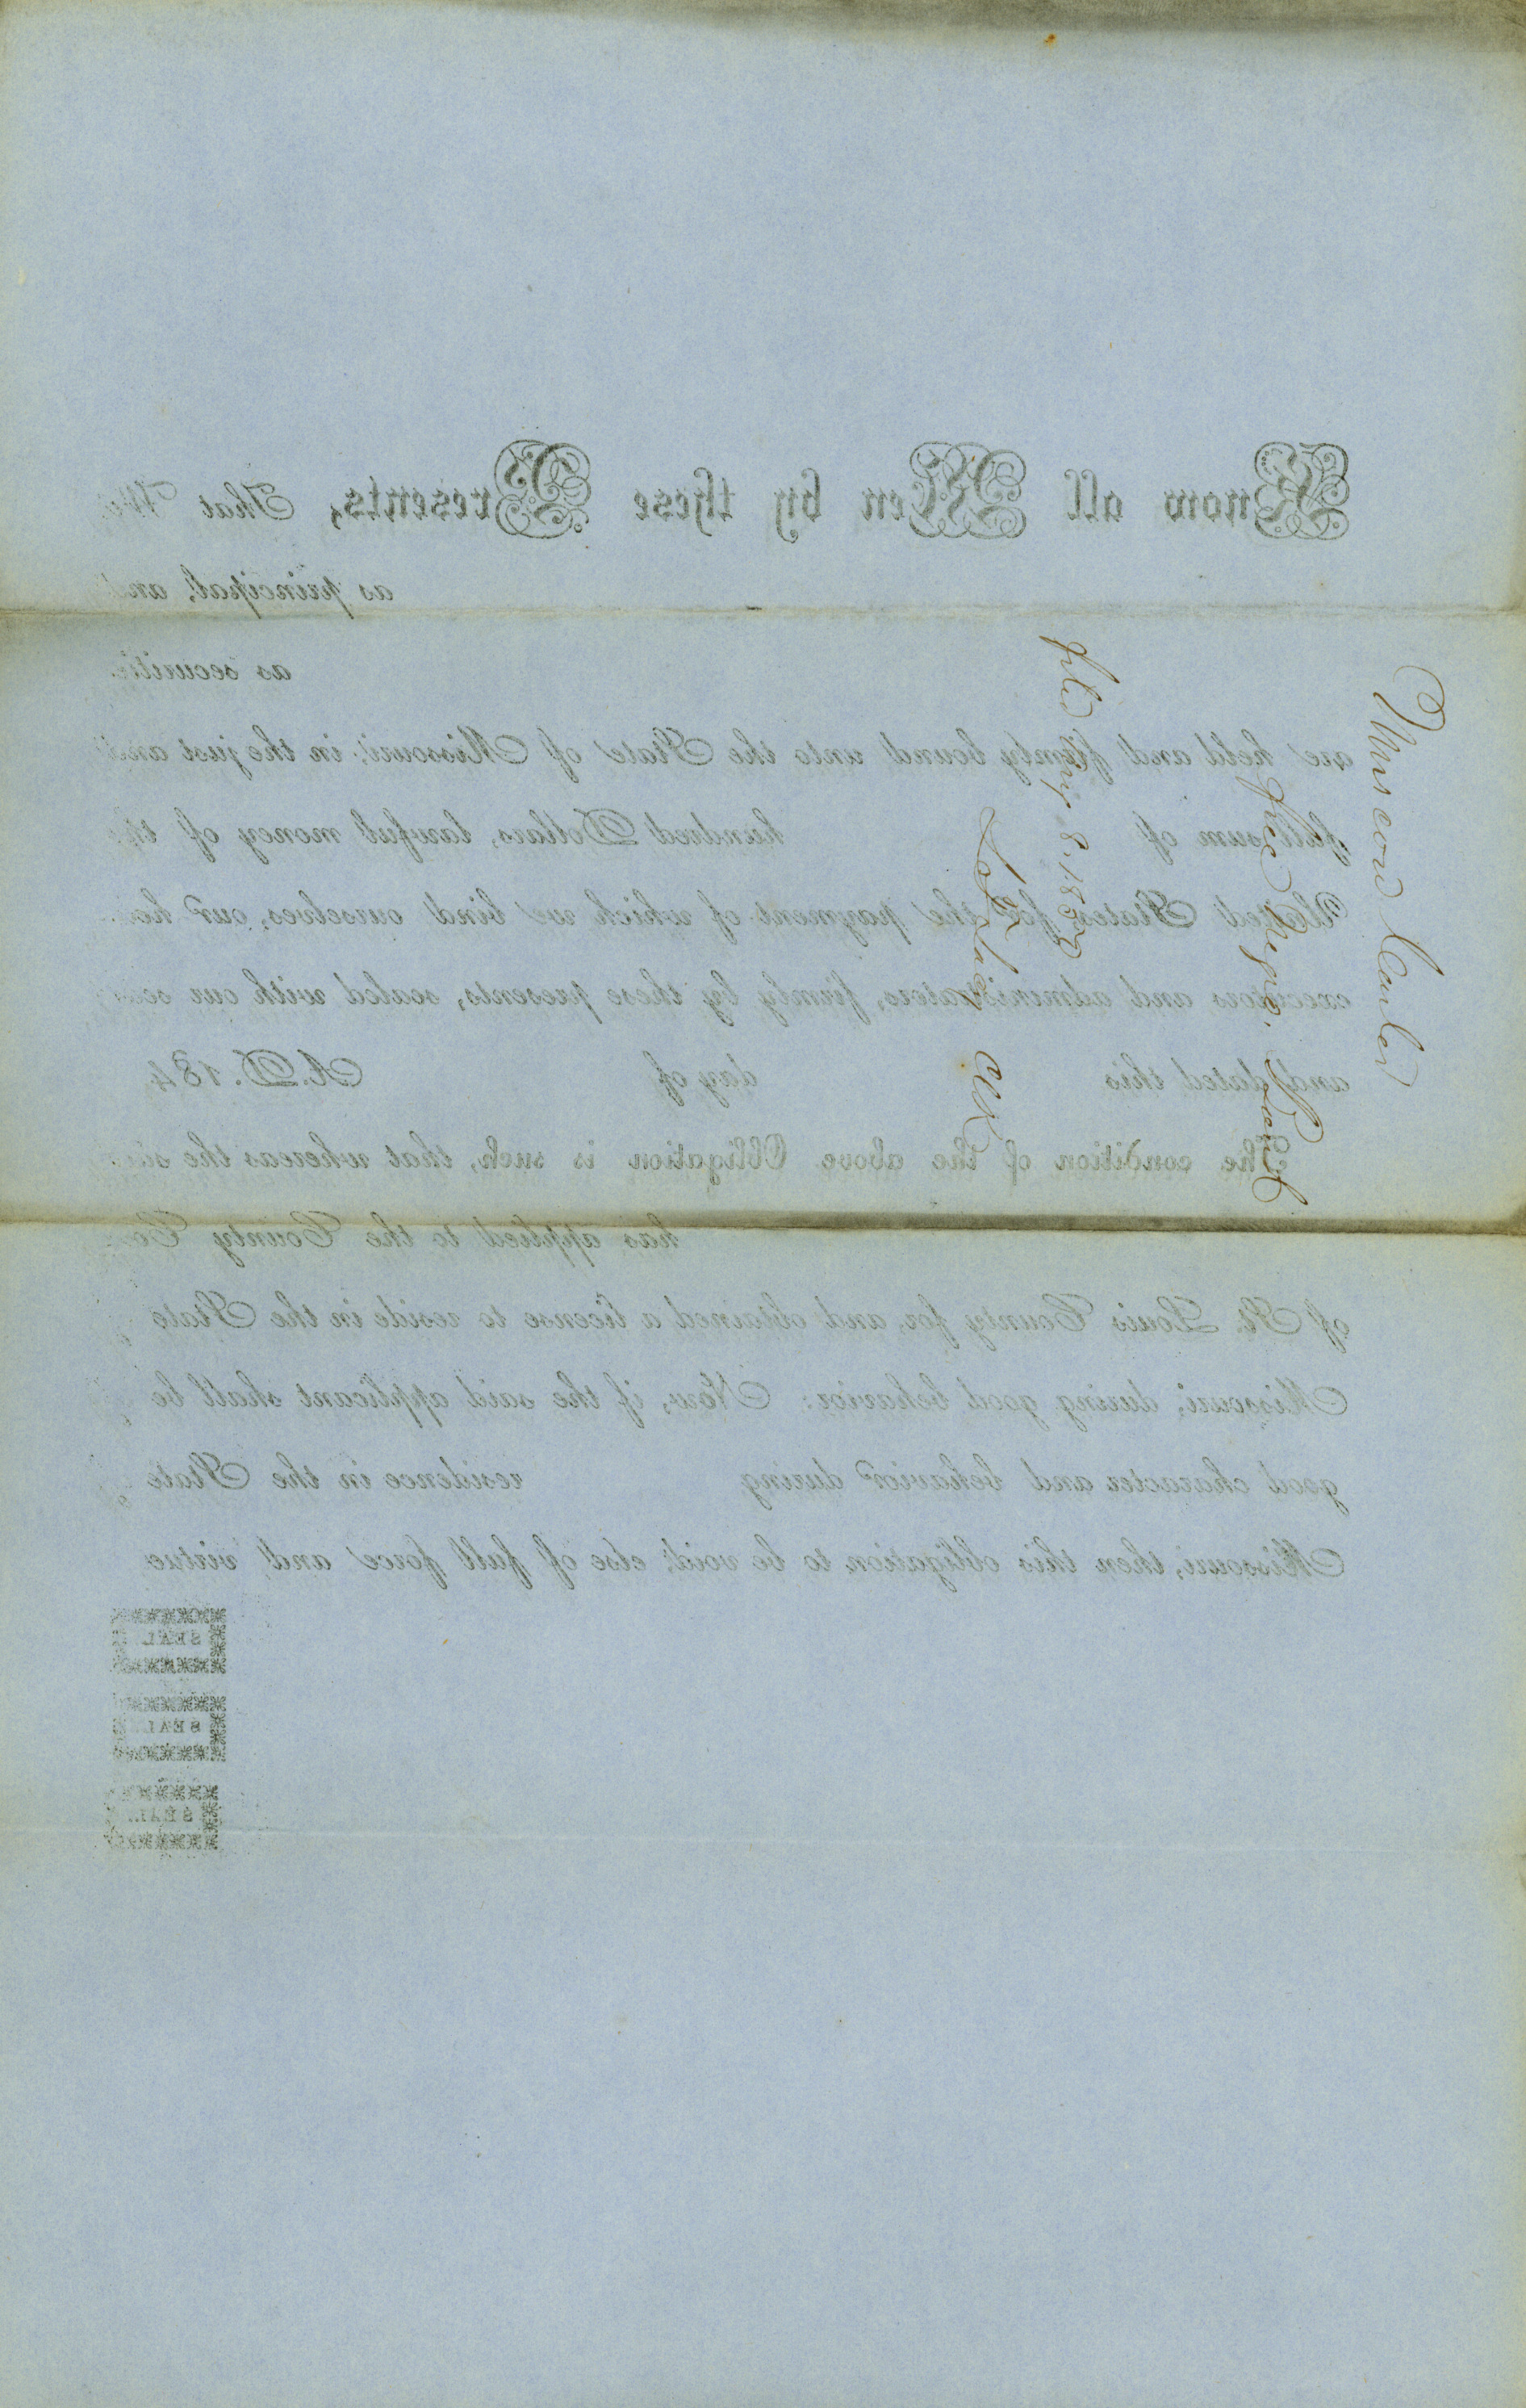 Know all Men by these Presents, That We,
as principal, and
as securities
are held and firmly bound unto the State of Missouri, in the just and
full sum of hundred Dollars, lawful money of the
United States for the payment of which we bind ourselves, our
executors and administrators, firmly by these presents, sealed with our
and dated this day of A. D. 184
The condition of the above Obligation is such, that whereas the
has applied to the County
of St. Louis County for, and obtained a license to reside in the State
Missouri, during good behavior: Now, if the said applicant shall be
good character and behavior during residence in the State
Missouri, then this obligation to be void; else of full force and virtue
SEAL
SEAL
SEAL
free Negro. Bond
filed
Clk